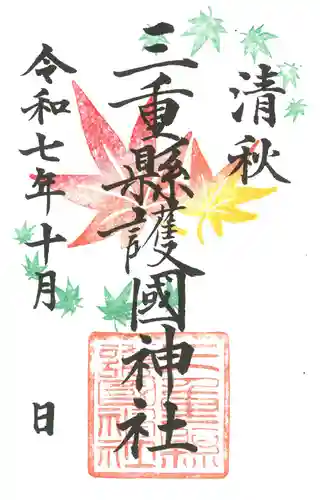 清秋
三重縣護國神社
令和七年十月
日
三重縣
護國神社